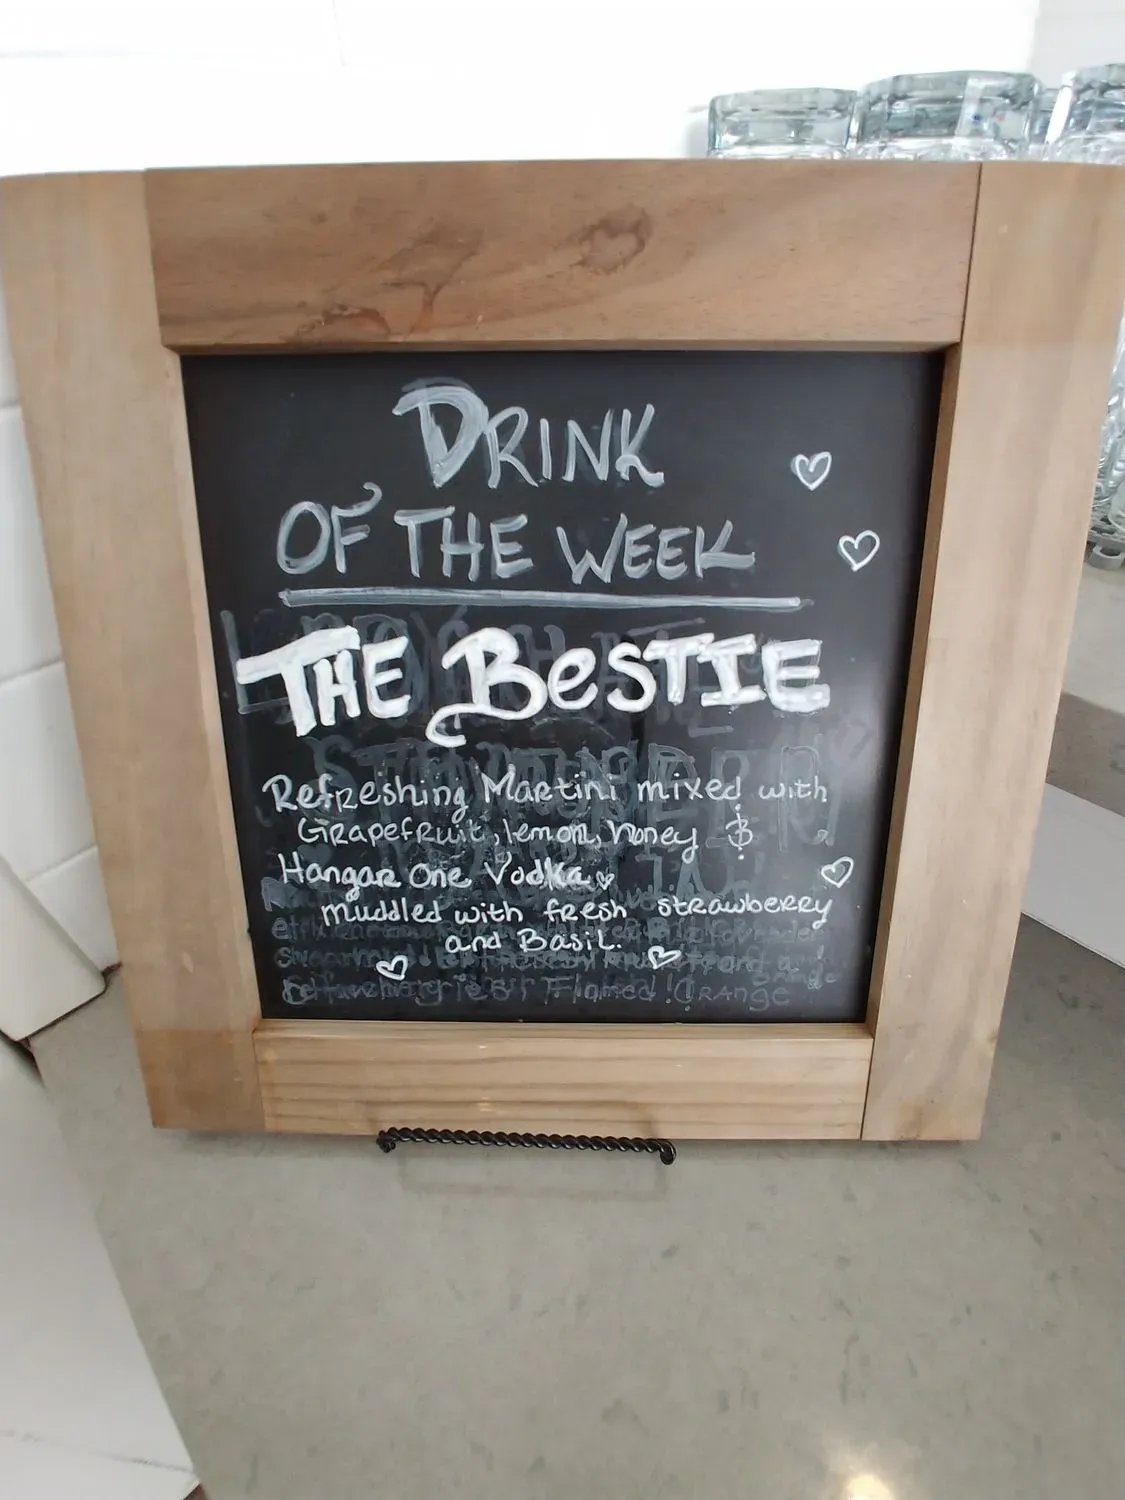 DRINK
OF THE WEEK
THE BeSTIE
Refreshing Martini mixed with
Grapefruit, lemon, honey &
Hangar One Vodka
muddled with fresh strawberry
and Basil.
Flamed Orange